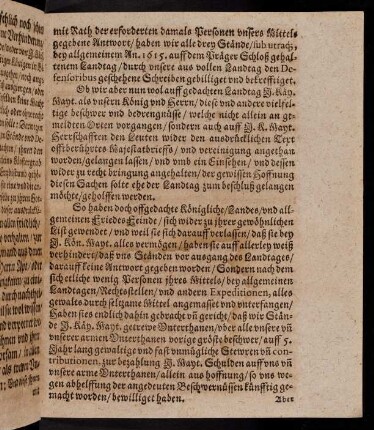 mit Rath der erforderten damals Personen vnsers Mittels
gegebene Antwort/ haben wir alle drey Stände/ sub utraq;
bey allgemeinem An. 1615. auff dem Präger Schloß gehal-
tenem Landtag/ durch vnsere aus vollen Landtag den De-
fensoribus geschehene Schreiben gebilliget vnd bekrefftiget.
Ob wir aber nun wol auff gedachten Landtag J. Käy.
Mayt. als vnsern König vnd Herrn/ diese vnd andere vielfel-
tige beschwer vnd bedrengnüsse/ welche nicht allein an ge-
meldten Orten vorgangen/ sondern auch auff J. K. Mayt.
Herrschafften den Leuten wider den ausdrücklichen Text
offtberührtes Majestatbrieffs/ vnd vereinigung angethan
worden/ gelangen lassen/ vnd vmb ein Einsehen/ vnd dessen
wider zu recht bringung angehalten/ der gewissen Hoffnung
diesen Sachen solte ehe der Landtag zum beschluß gelangen
möchte/ geholffen werden.
So haben doch offgedachte Königliche/ Landes/ vnd all-
gemeinen Friedes Feinde/ sich wider zu jhrer gewöhnlichen
List gewendet/ vnd weil sie sich darauff verlassen/ daß sie bey
J. Kön. Mayt. alles vermögen/ haben sie auff allerley weiß
verhindert/ daß vns Ständen vor ausgang des Landtages/
darauff keine Antwort gegeben worden/ Sondern nach dem
sich etliche wenig Personen jhres Mittels/ bey allgemeinen
Landtagen/ Rechtstellen/ vnd andern Expeditionen, alles
gewalts durch seltzame Mittel angemasset vnd vnterfangen/
Haben sies endlich dahin gebracht vñ gericht/ daß wir Stän-
de J. Käy. Mayt. getrewe Vnterthanen/ vber alle vnsere vñ
vnserer armen Vnterthanen vorige gröste beschwer/ auff 5.
Jahr lang gewaltige vnd fast vnmügliche Stewren vñ con-
tributionen, zur bezahlung J. Mayt. Schulden auff vns vñ
vnsere arme Vnterthanen/ allein aus hoffnung/ so vns we-
gen abhelffung der angedeuten Beschwernüssen künfftig ge-
macht worden/ bewilliget haben.
Aber